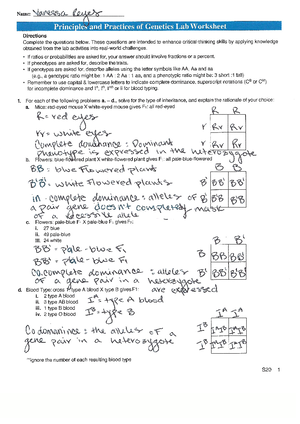 Name: Vanessa Reyes
Principles and Practices of Genetics Lab Worksheet
Directions
Complete the questions below. These questions are intended to enhance critical thinking skills by applying knowledge
obtained from the lab activities into real-world challenges.
• If ratios or probabilities are asked for, your answer should involve fractions or a percent.
• If phenotypes are asked for, describe the traits.
• If genotypes are asked for, describe alleles using the letter symbols like AA, Aa and aa
(e.g., a genotypic ratio might be: 1 AA : 2 Aa : 1 aa, and a phenotypic ratio might be: 3 short : 1 tall)
• Remember to use capital & lowercase letters to indicate complete dominance, superscript notations
for incomplete dominance and for blood typing.
1. For each of the following problems a. – d., solve for the type of inheritance, and explain the rationale of your choice:
a. Mice: red-eyed mouse X white-eyed mouse gives F₁: all red-eyed
R = red eyes
rr = white eyes
Complete dominance: Dominant
phenotype is expressed in the heterozygote
R R
r Rr Rr
r Rr Rr
b. Flowers: blue-flowered plant X white-flowered plant gives F₁: all pale-blue-flowered
BB = blue flowered plants
B'B' = white flowered plants
in complete dominance: alleles of
a pair gene doesn't completely mask
of a recessive allele
B B
B' BB' BB'
B' BB' BB'
c. Flowers: pale-blue F₁ X pale-blue F₁ gives F₂:
i. 27 blue
ii. 49 pale-blue
iii. 24 white
BB' = pale-blue F₁
BB' = pale-blue F₂
Co complete dominance: alleles
of a gene pair in a heterozygote
expressed
B B'
B BB BB'
B' BB' B'B'
d. Blood Type: cross A type A blood X type B gives F₁:
i. 2 type A blood
ii. 2 type AB blood
iii. 1 type B blood
iv. 2 type O blood
Iᴬ = type A blood
Iᴮ = type B
Codominance: the alleles of a
gene pair in a heterozygote
Iᴬ Iᴬ
Iᴮ IᴬIᴮ IᴬIᴮ
Iᴮ IᴬIᴮ IᴬIᴮ
**Ignore the number of each resulting blood type
S20 1